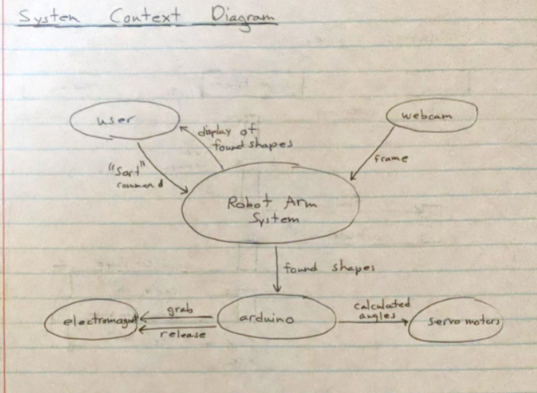 System Context Diagram
user
webcam
display of
found shapes
"Sort"
command
frame
Robot Arm
System
found shapes
electromagnet
grab
release
arduino
calculated
angles
servo motors